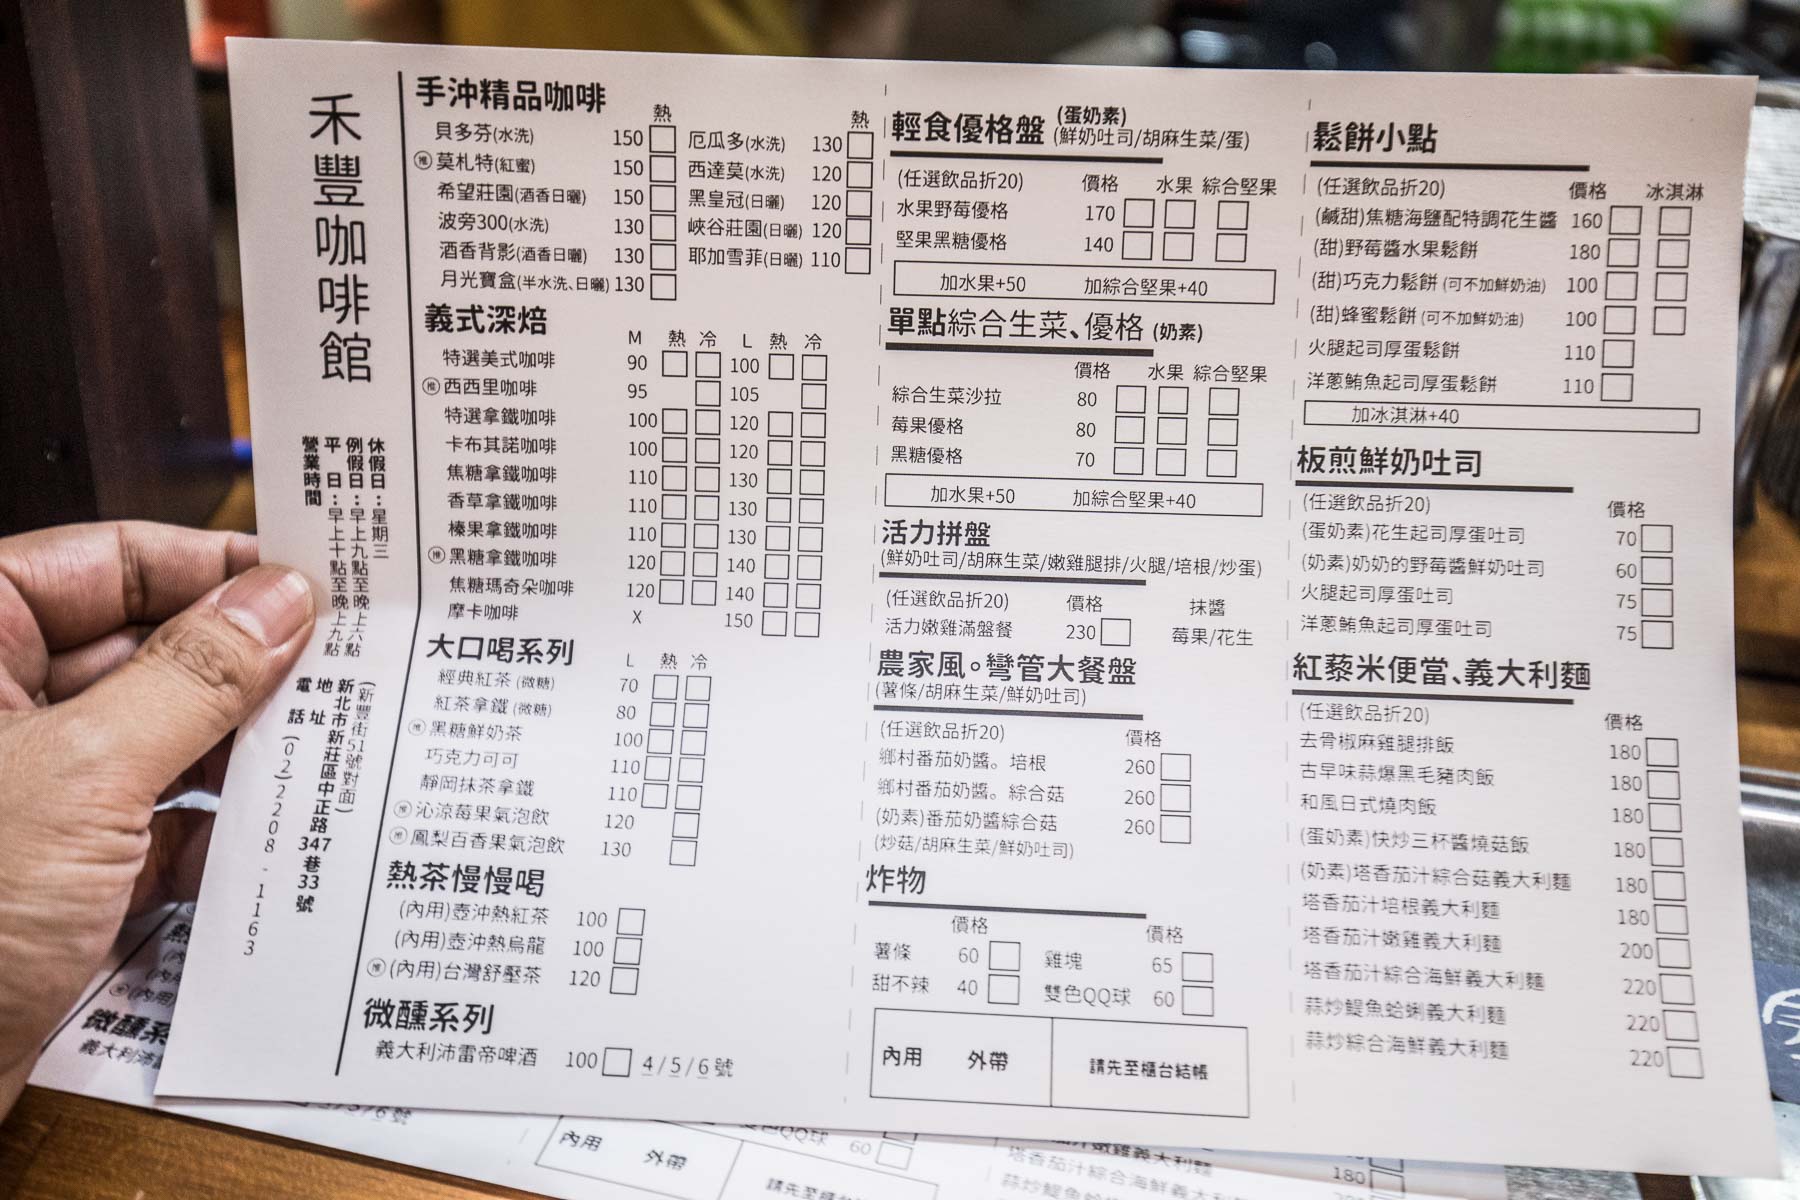 禾豐咖啡館
休假日:星期三
例假日:早上九點至晚上六點
平 日:早上十點至晚上九點
營業時間
(新豐街51號對面)
新北市新莊區中正路347巷33號
地 址
電 話(02)2208-1163
手沖精品咖啡
熱 熱
貝多芬(水洗) 150 厄瓜多(水洗) 130
推 莫札特(紅蜜) 150 西達莫(水洗) 120
希望莊園(酒香日曬) 150 黑皇冠(日曬) 120
波旁300(水洗) 130 峽谷莊園(日曬) 120
酒香背影(酒香日曬) 130 耶加雪菲(日曬) 110
月光寶盒(半水洗、日曬) 130
義式深焙
M 熱 冷 L 熱 冷
特選美式咖啡 90 100
推 西西里咖啡 95 105
特選拿鐵咖啡 100 120
卡布其諾咖啡 100 120
焦糖拿鐵咖啡 110 130
香草拿鐵咖啡 110 130
榛果拿鐵咖啡 110 130
推 黑糖拿鐵咖啡 120 140
焦糖瑪奇朵咖啡 120 140
摩卡咖啡 X 150
大口喝系列
L 熱 冷
經典紅茶 (微糖) 70
紅茶拿鐵 (微糖) 80
推 黑糖鮮奶茶 100
巧克力可可 110
靜岡抹茶拿鐵 110
推 沁涼莓果氣泡飲 120
推 鳳梨百香果氣泡飲 130
熱茶慢慢喝
(內用)壺沖熱紅茶 100
(內用)壺沖熱烏龍 100
推 (內用)台灣舒壓茶 120
微醺系列
義大利沛雷帝啤酒 100 4/5/6號
輕食優格盤 (蛋奶素)
(鮮奶吐司/胡麻生菜/蛋)
(任選飲品折20) 價格 水果 綜合堅果
水果野莓優格 170
堅果黑糖優格 140
加水果+50 加綜合堅果+40
單點綜合生菜、優格 (奶素)
價格 水果 綜合堅果
綜合生菜沙拉 80
莓果優格 80
黑糖優格 70
加水果+50 加綜合堅果+40
活力拼盤
(鮮奶吐司/胡麻生菜/嫩雞腿排/火腿/培根/炒蛋)
(任選飲品折20) 價格 抹醬
活力嫩雞滿盤餐 230 莓果/花生
農家風。彎管大餐盤
(薯條/胡麻生菜/鮮奶吐司)
(任選飲品折20) 價格
鄉村番茄奶醬。培根 260
鄉村番茄奶醬。綜合菇 260
(奶素)番茄奶醬綜合菇 260
(炒菇/胡麻生菜/鮮奶吐司)
炸物
價格 價格
薯條 60 雞塊 65
甜不辣 40 雙色QQ球 60
內用 外帶 請先至櫃台結帳
鬆餅小點
(任選飲品折20) 價格 冰淇淋
(鹹甜)焦糖海鹽配特調花生醬 160
(甜)野莓醬水果鬆餅 180
(甜)巧克力鬆餅 (可不加鮮奶油) 100
(甜)蜂蜜鬆餅 (可不加鮮奶油) 100
火腿起司厚蛋鬆餅 110
洋蔥鮪魚起司厚蛋鬆餅 110
加冰淇淋+40
板煎鮮奶吐司
(任選飲品折20) 價格
(蛋奶素)花生起司厚蛋吐司 70
(奶素)奶奶的野莓醬鮮奶吐司 60
火腿起司厚蛋吐司 75
洋蔥鮪魚起司厚蛋吐司 75
紅藜米便當、義大利麵
(任選飲品折20) 價格
去骨椒麻雞腿排飯 180
古早味蒜爆黑毛豬肉飯 180
和風日式燒肉飯 180
(蛋奶素)快炒三杯醬燒菇飯 180
(奶素)塔香茄汁綜合菇義大利麵 180
塔香茄汁培根義大利麵 180
塔香茄汁嫩雞義大利麵 200
塔香茄汁綜合海鮮義大利麵 220
蒜炒鯷魚蛤蜊義大利麵 220
蒜炒綜合海鮮義大利麵 220
微醺系
內用 外帶
請先至櫃台結帳
QQ球 60
塔香茄汁綜合海鮮義大利麵
180